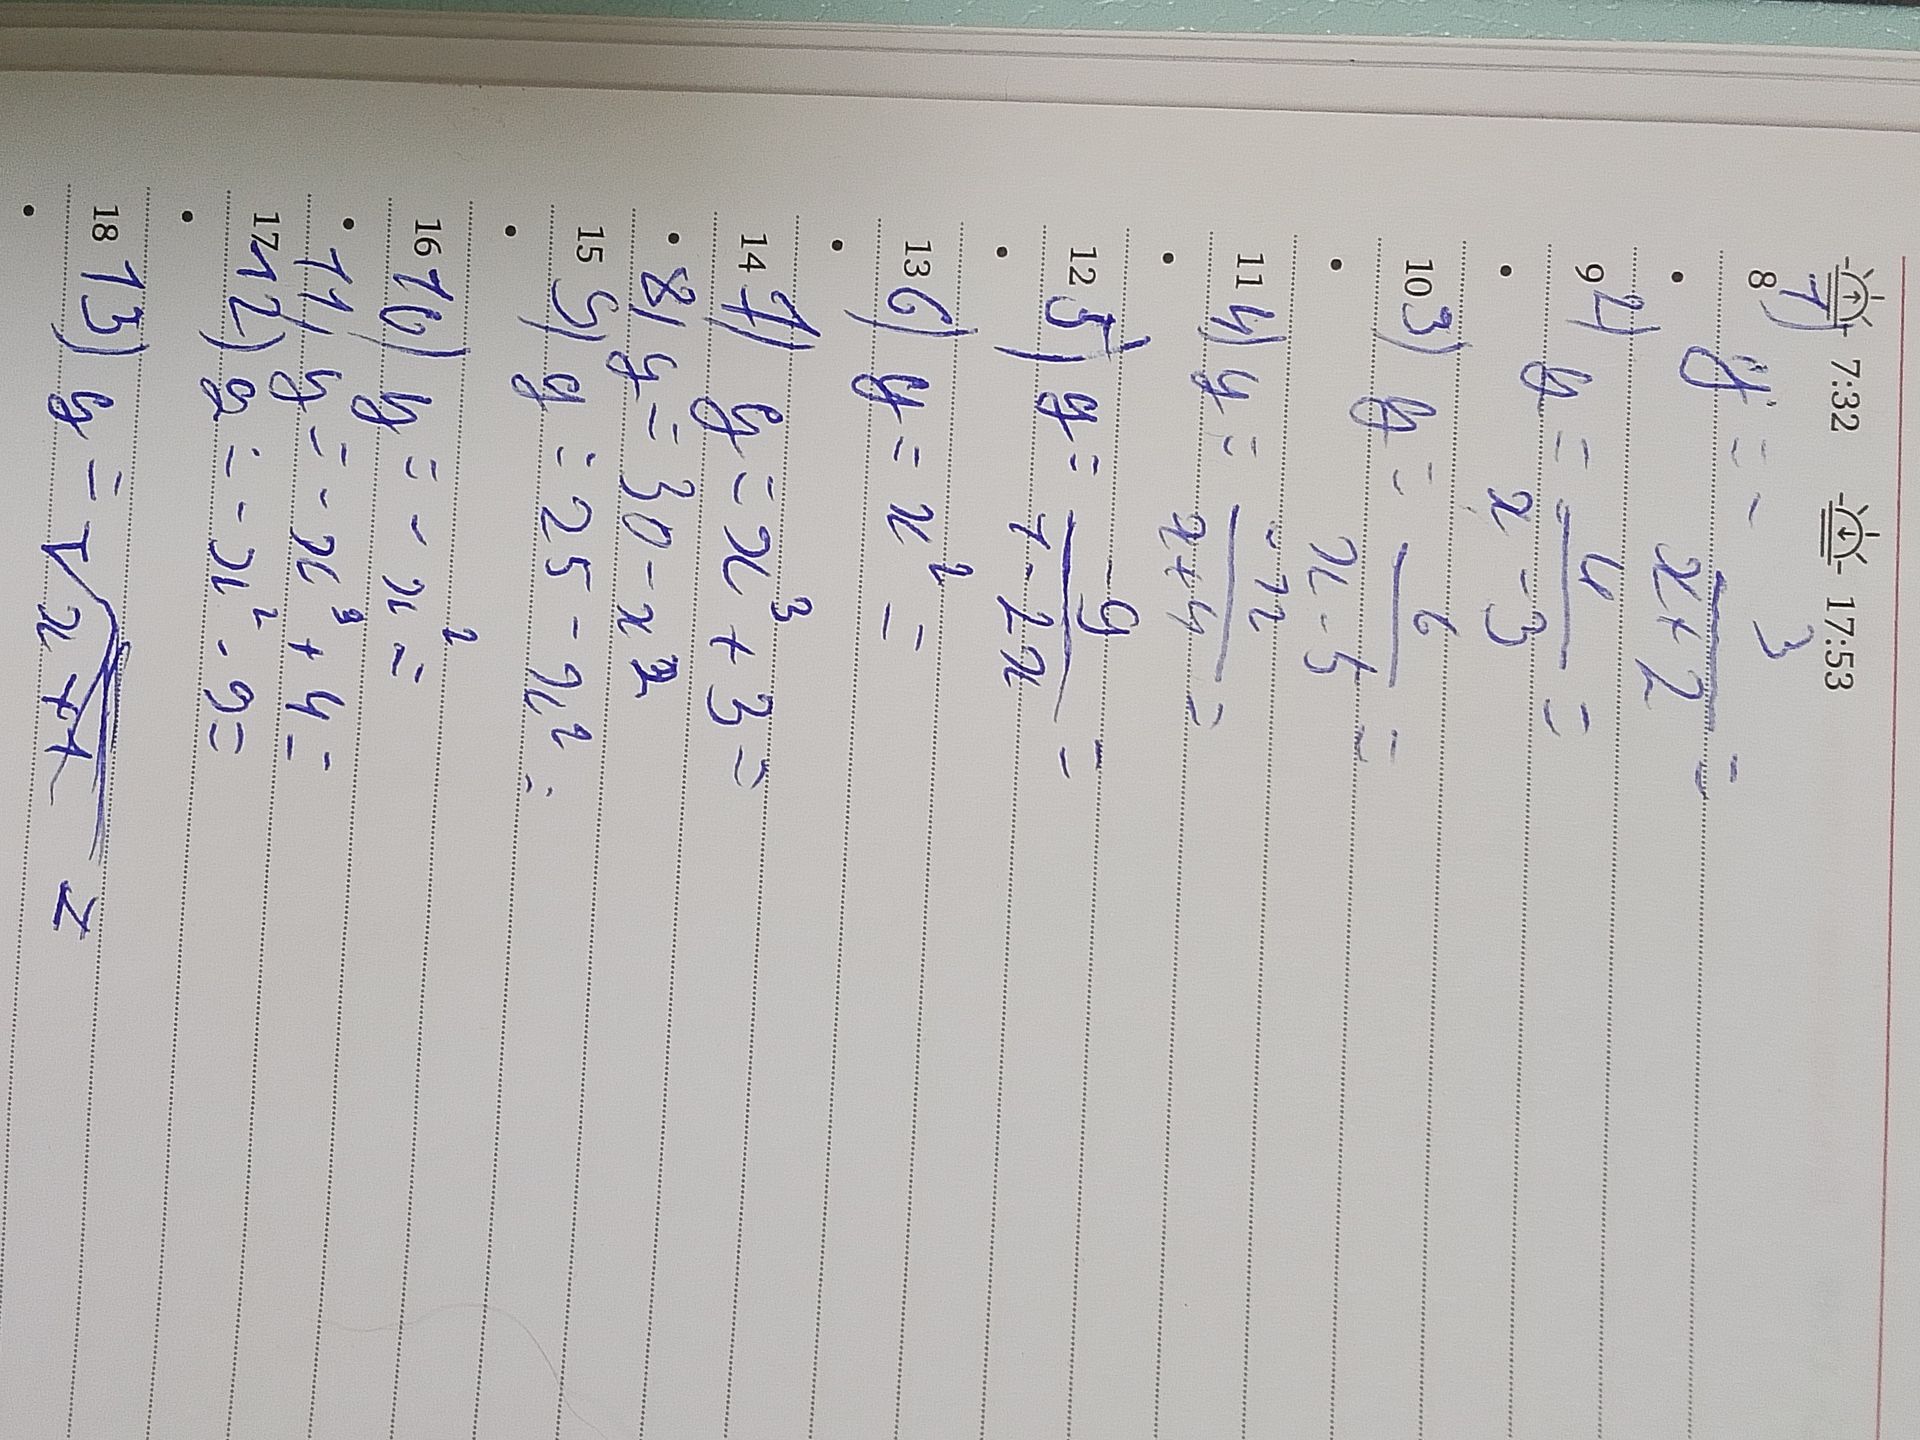 7:32 17:53
8 1) y = - 3/(x+2) =
9 2) y = 4/(x-3) =
10 3) y = 6/(x-5) =
11 4) y = -12/(x+4) =
12 5) y = -9/(1-2x) =
13 6) y = x² =
14 7) y = x³ + 3 =
8) y = 30 - x²
15 9) y = 25 - x² =
16 10) y = - x² =
11) y = - x³ + 4 =
17 12) y = - x² - 9 =
18 13) y = √x+1 =